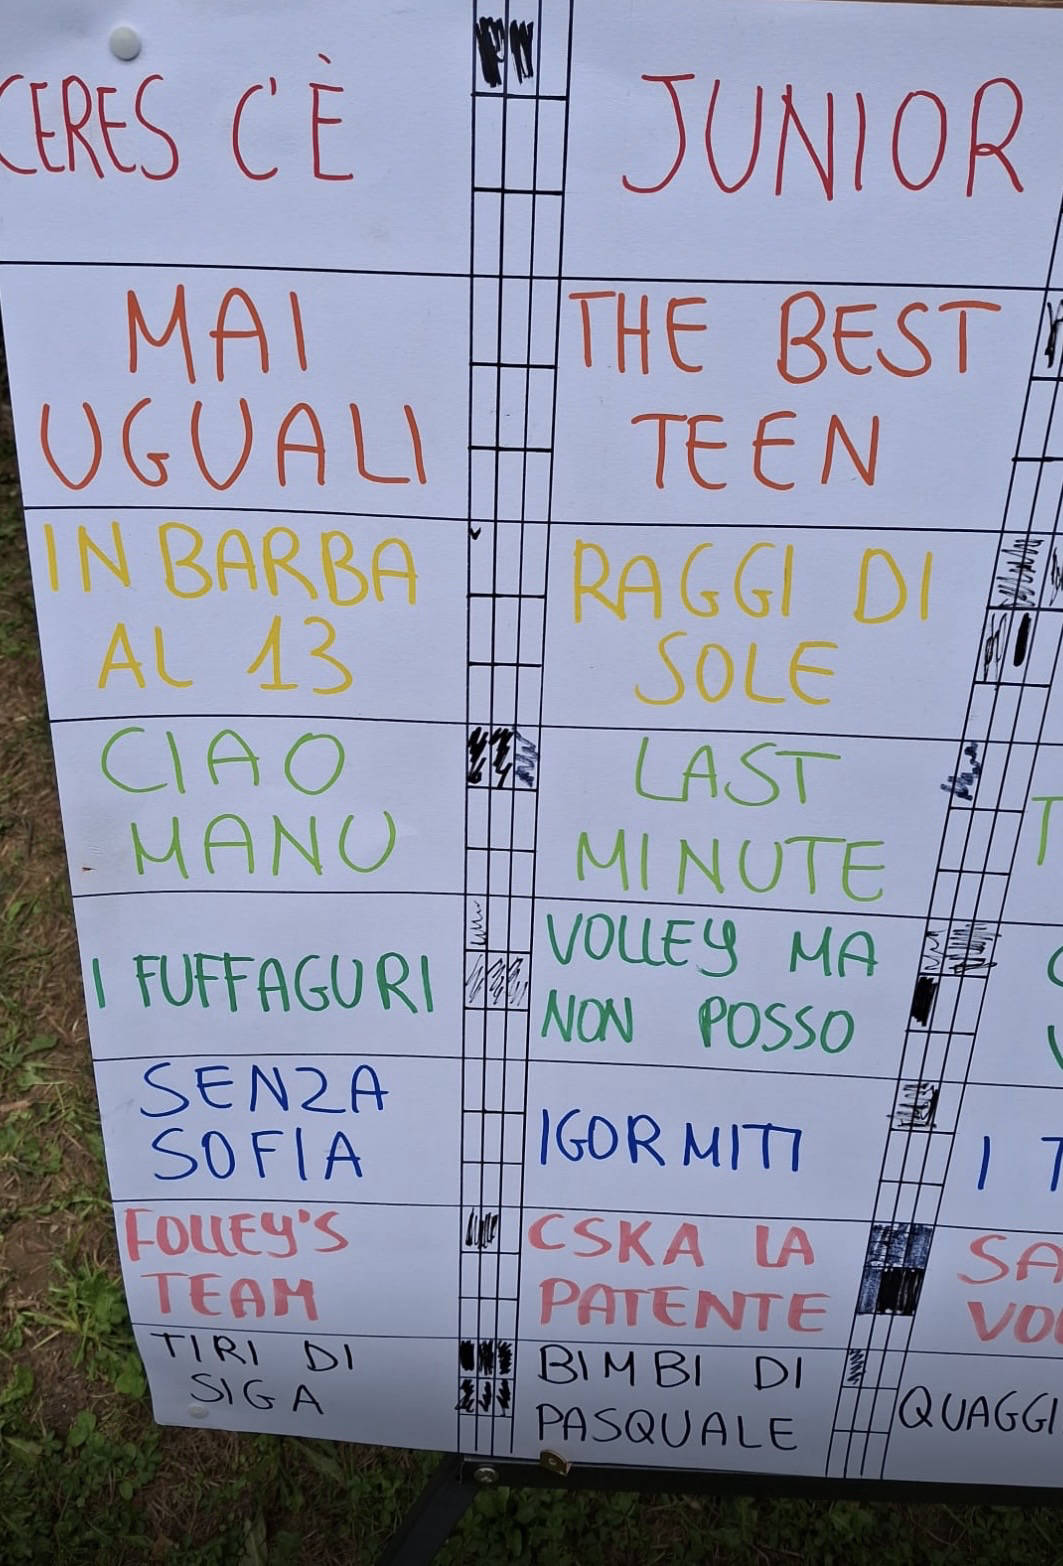 CERES C'È
JUNIOR
MAI
UGUALI
THE BEST
TEEN
IN BARBA
AL 13
RAGGI DI
SOLE
CIAO
MANU
LAST
MINUTE
I FUFFAGURI
VOLLEY MA
NON POSSO
SENZA
SOFIA
IGOR MITI
I T
FOLLEY'S
TEAM
CSKA LA
PATENTE
SA
VO
TIRI DI
SIGA
BIMBI DI
PASQUALE
QUAGGI